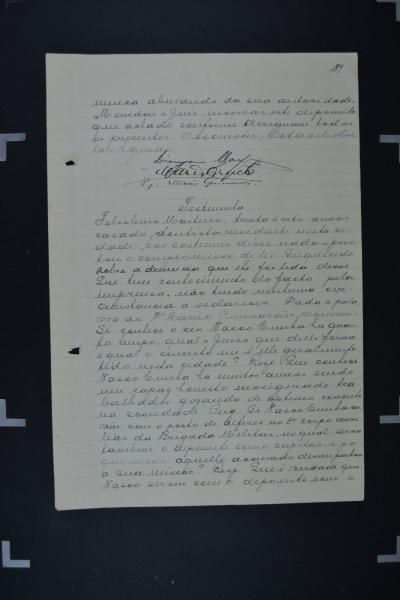 nunca abusando da sua autoridade.
Mandou o Juiz encerrar este depoimento
que achado conforme assignam todos
os presentes. Eu, escrivão,
Mario
Pp. Mario Guimarães
Testemunha
Felisbino Monteiro, trinta e sete annos
casado, dentista residente nesta ci-
dade. Aos costumes disse nada e pres-
tou o compromisso da lei. Inquirido
sobre a denuncia que lhe foi lida disse:
Que tem conhecimento do facto pela
imprensa, não tendo nenhuma cir-
cumstancia a esclarecer. Dada a pala-
vra ao Dr. Mario Guimarães requereu:
Si conhece o réo Vasco Cunha ha quan-
to tempo, qual o Juizo que delle forma
e qual o conceito em é elle geralmente
tido nesta cidade? Resp. Que conhece
Vasco Cunha ha muitos annos sendo
um rapaz honesto morigerado tra-
balhador gozando de optimo conceito
na sociedade. Perg. Si Vasco Cunha ser-
viu com o posto de alferes no 3º corpo auxi-
liar da Brigada Militar, no qual serviu
tambem o depoente como capitão, e
aquelle acusado desempenhou
a sua missão? Resp. Que é verdade que
Vasco serviu com o depoente sem o